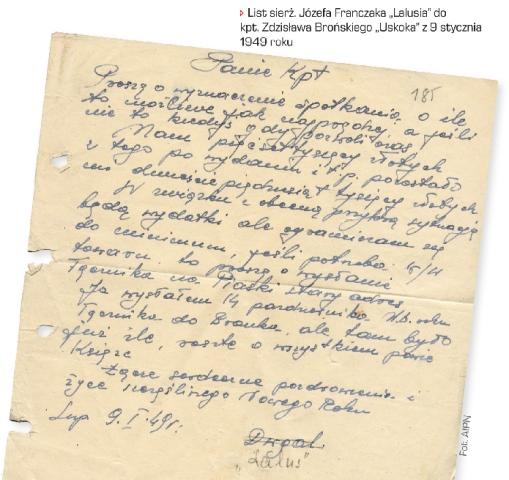 List sierż. Józefa Franczaka „Lalusia” do
kpt. Zdzisława Brońskiego „Uskoka” z 9 stycznia
1949 roku
Panie Kpt
185
Proszę o wyznaczenie spotkania, o ile
to możliwe jak najprędzej, a jeśli
nie to kiedyś gdy pozwoli czas
Mam pięćset tysięcy złotych
z tego po wydaniu i t. p. pozostało
mi dwieście pięćdziesiąt tysięcy złotych
W związku z obecną przykrą sytuacją
będą wydatki ale ograniczam się
do minimum, jeśli potrzeba
towaru to proszę o wysłanie
Łącznika na Piaski stary adres
Ja wysłałem 14 października u.b. roku
Łącznika do Bronka, ale tam było
głuź ile, reszte o wszystkiem powie
Księże
Łączę serdeczne pozdrowienia i
życzę szczęśliwego Nowego Roku
9.I.49r.
„Laluś”
Fot. AIPN